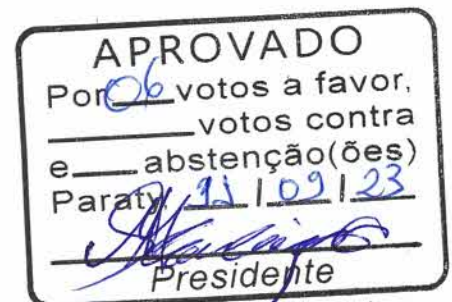 APROVADO
Por 06 votos a favor,
______ votos contra
e____ abstenção(ões)
Paraty, 11 / 09 / 23
Presidente